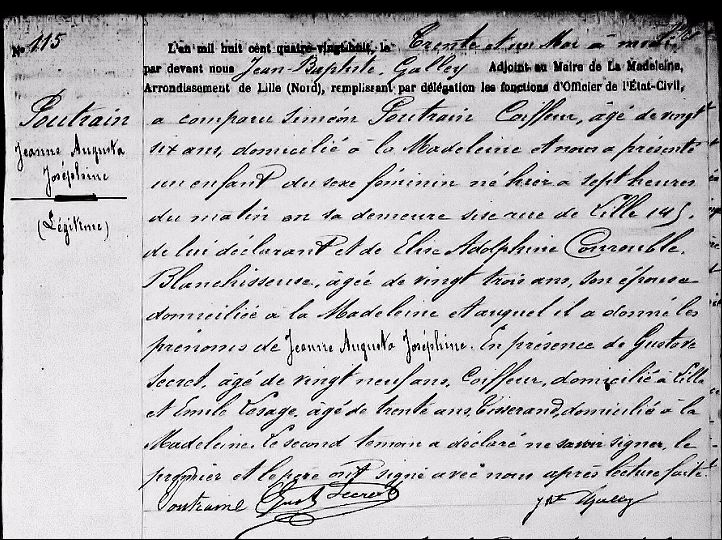 N° 115
Poutrain
Jeanne Augusta
Joséphine
(Légitime)
L'an mil huit cent quatre-vingt-huit, le Trente et un Mai à midi
par devant nous Jean-Baptiste Galley Adjoint au Maire de La Madeleine,
Arrondissement de Lille (Nord), remplissant par délégation les fonctions d'Officier de l'État-Civil,
a comparu Siméon Poutrain Coiffeur, âgé de vingt
six ans, domicilié à la Madeleine et nous a présenté
un enfant du sexe féminin né hier à sept heures
du matin en sa demeure sise rue de Lille 145,
de lui déclarant et de Elise Adolphine Courouble
Blanchisseuse, âgée de vingt trois ans, son épouse
domiciliée à la Madeleine et auquel il a donné les
prénoms de Jeanne Augusta Joséphine. En présence de Gustave
Secret, âgé de vingt neuf ans, Coiffeur, domicilié à Lille
et Emile Lesage, âgé de trente ans, Tisserand, domicilié à la
Madeleine. Le second témoin a déclaré ne savoir signer, le
premier et le père ont signé avec nous après lecture faite.
Poutrain Gust Secret Galley